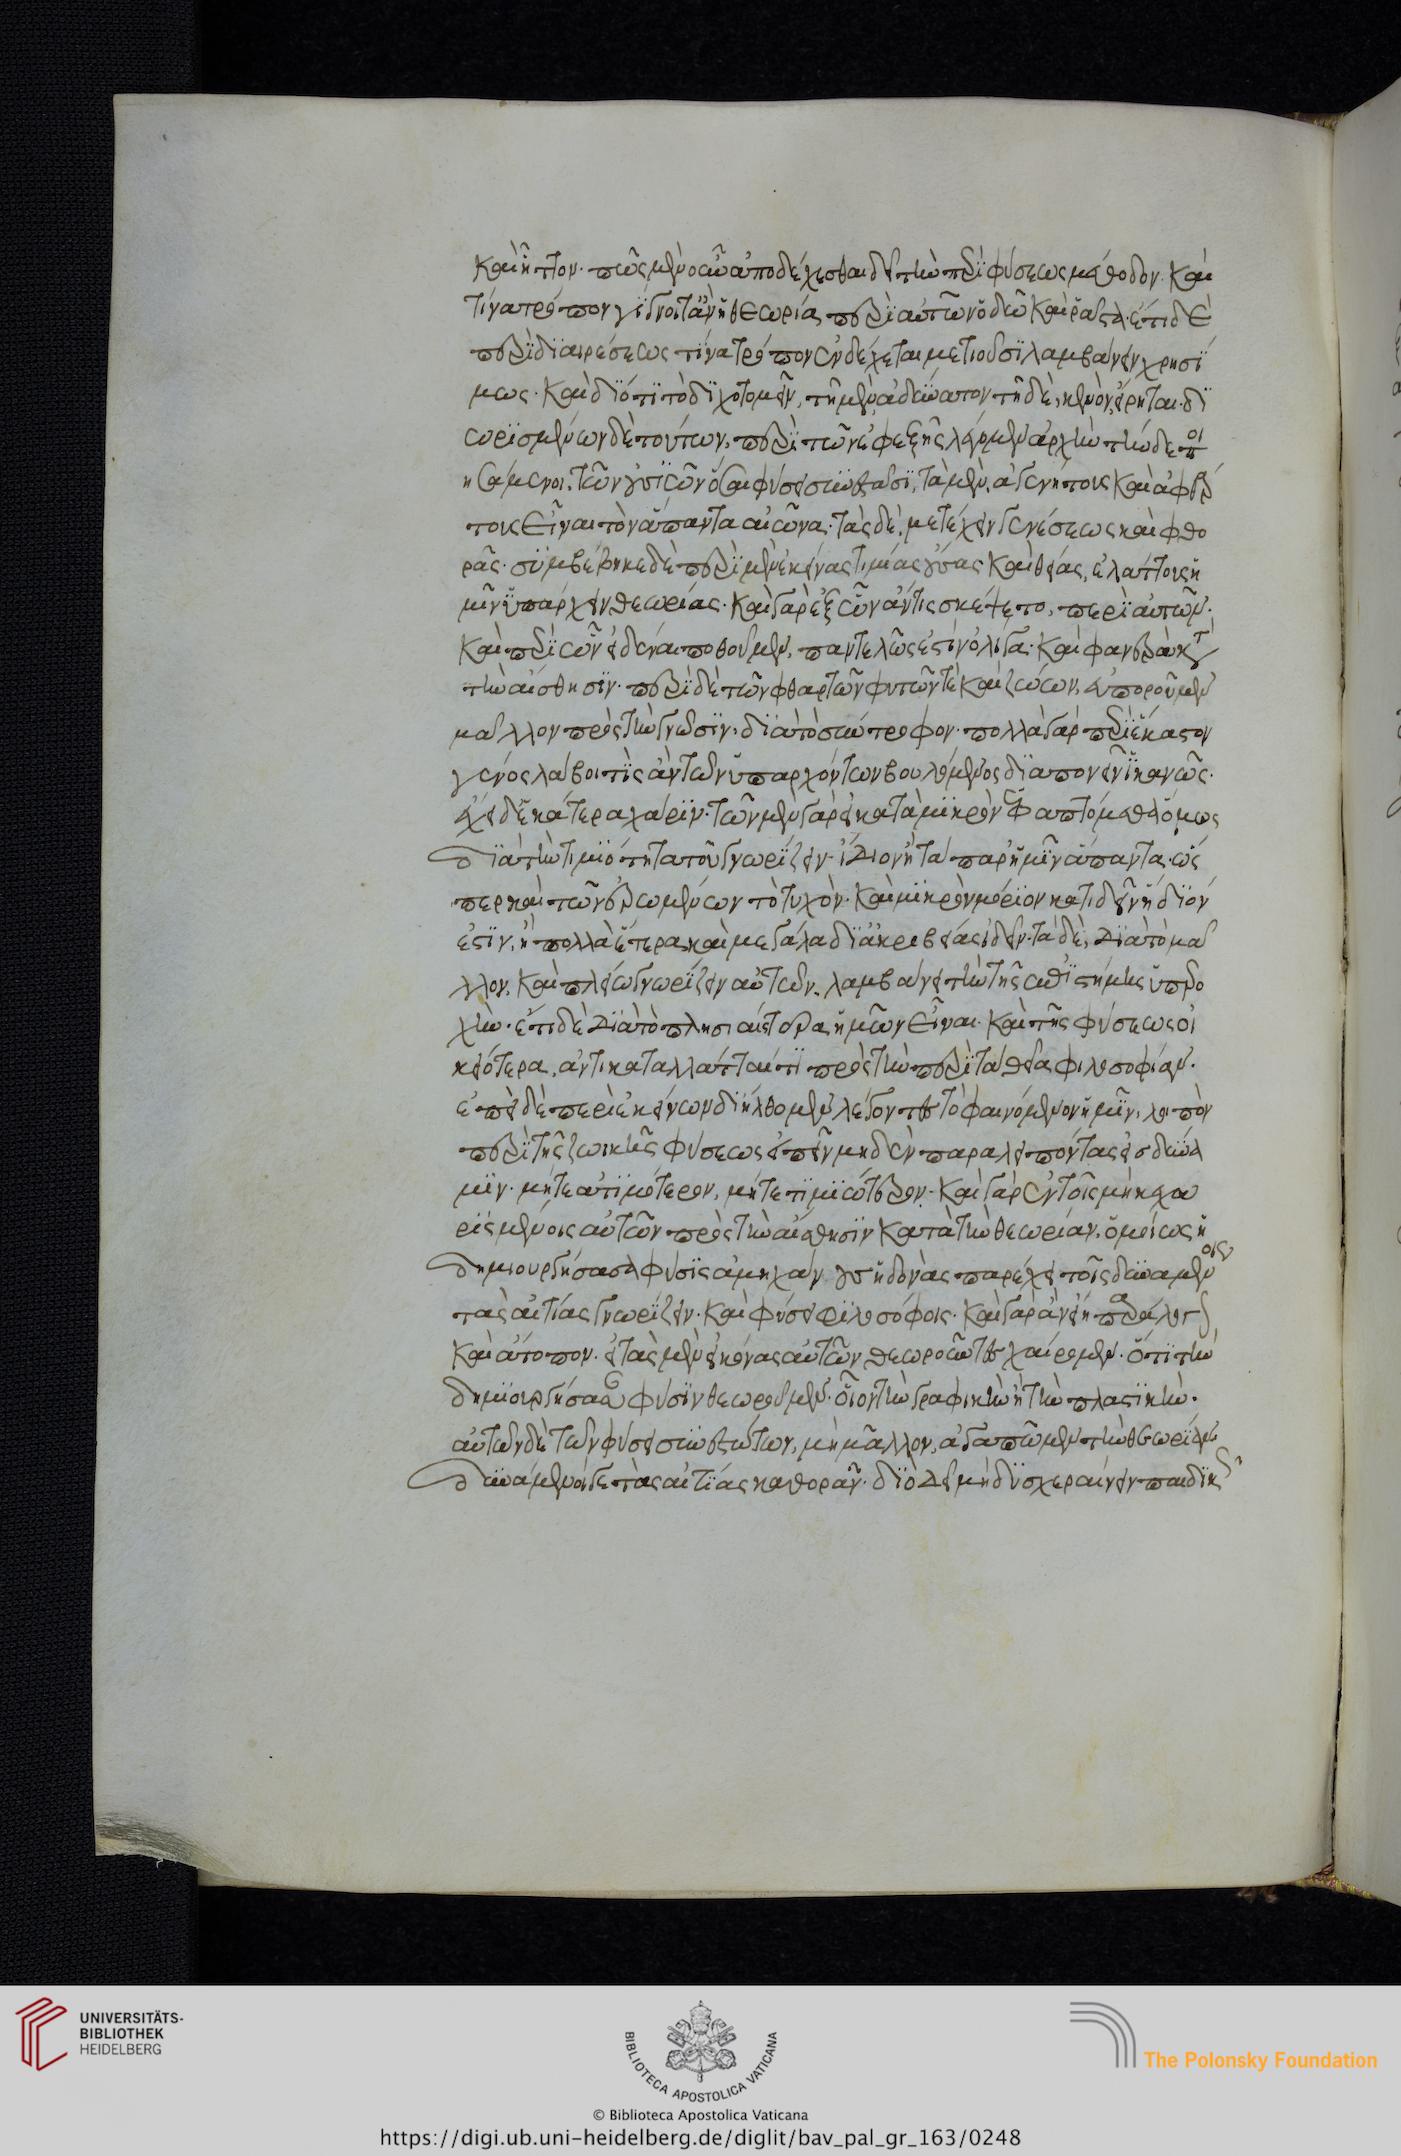 καὶ ἧττον. πῶς μὲν οὖν ἀποδέχεσθαι δεῖ τὴν περὶ φύσεως μέθοδον. καὶ
τίνα τρόπον γίγνοιτ' ἂν ἡ θεωρία περὶ αὐτῶν ὁδῷ καὶ ῥᾷστα. ἔτι δὲ
περὶ διαιρέσεως τίνα τρόπον ἐνδέχεται μετιοῦσι λαμβάνειν χρησί
μως. καὶ διότι τὸ διχοτομεῖν, τῇ μὲν ἀδύνατον τῇ δὲ, κενὸν, εἴρηται. δι
ωρισμένων δὲ τούτων, περὶ τῶν ἐφεξῆς λέγομεν ἀρχὴν τήνδε ποι
ησάμενοι. τῶν οὐσιῶν ὅσαι φύσει συνεστᾶσι, τὰς μὲν, ἀγενήτους καὶ ἀφθάρ
τους εἶναι τὸν ἅπαντα αἰῶνα. τὰς δὲ, μετέχειν γενέσεως καὶ φθο
ρᾶς. συμβέβηκε δὲ περὶ μὲν ἐκείνας τιμίας οὔσας καὶ θείας, ἐλάττους ἡ
μῖν ὑπάρχειν θεωρίας. καὶ γὰρ ἐξ ὧν ἄν τις σκέψαιτο, περὶ αὐτῶν.
καὶ περὶ ὧν εἰδέναι ποθοῦμεν, παντελῶς ἐστὶν ὀλίγα. καὶ φανερὰ κατὰ
τὴν αἴσθησιν. περὶ δὲ τῶν φθαρτῶν φυτῶν τε καὶ ζώων, εὐποροῦμεν
μᾶλλον πρὸς τὴν γνῶσιν. διὰ τὸ σύντροφον. πολλὰ γὰρ περὶ ἕκαστον
γένος λάβοι τις ἂν τῶν ὑπαρχόντων βουλόμενος διαπονεῖν ἱκανῶς.
ἔχει δ' ἑκάτερα χάριν. τῶν μὲν γὰρ εἰ κατὰ μικρὸν ἐφαπτόμεθα ὅμως
διὰ τὴν τιμιότητα τοῦ γνωρίζειν. ἥδιον ἢ τὰ παρ' ἡμῖν ἅπαντα. ὥς
περ καὶ τῶν ἐρωμένων τὸ τυχὸν. καὶ μικρὸν μόριον κατιδεῖν ἥδιόν
ἐστιν, ἢ πολλὰ ἕτερα, καὶ μεγάλα δι' ἀκριβείας ἰδεῖν. τὰ δὲ, διὰ τὸ μᾶ
λλον, καὶ πλείω γνωρίζειν αὐτῶν, λαμβάνει τὴν τῆς ἐπιστήμης ὑπερο
χήν. ἔτι δὲ διὰ τὸ πλησιαίτερα ἡμῶν εἶναι. καὶ τῆς φύσεως οἰ
κειότερα, ἀντικαταλλάττεταί τι πρὸς τὴν περὶ τὰ θεῖα φιλοσοφίαν.
ἐπεὶ δὲ περὶ ἐκείνων διήλθομεν λέγοντες τὸ φαινόμενον ἡμῖν, λοιπὸν
περὶ τῆς ζωικῆς φύσεως εἰπεῖν μηδὲν παραλείποντας εἰς δύνα
μιν. μήτε ἀτιμότερον, μήτε τιμιώτερον. καὶ γὰρ ἐν τοῖς μὴ κεχα
ρισμένοις αὐτῶν πρὸς τὴν αἴσθησιν κατὰ τὴν θεωρίαν, ὁμοίως ἡ
δημιουργήσασα φύσις ἀμηχάνους ἡδονὰς παρέχει τοῖς δυναμένοις
τὰς αἰτίας γνωρίζειν. καὶ φύσει φιλοσόφοις. καὶ γὰρ ἂν εἴη παράλογον
καὶ ἄτοπον. εἰ τὰς μὲν εἰκόνας αὐτῶν θεωροῦντες χαίρομεν. ὅτι τὴν
δημιουργήσασαν φύσιν θεωροῦμεν. οἷον τὴν γραφικὴν ἢ τὴν πλαστικήν.
αὐτῶν δὲ τῶν φύσει συνεστώτων, μὴ μᾶλλον, ἀγαπῶμεν τὴν θεωρίαν
δυνάμενοί γε τὰς αἰτίας καθορᾶν. διὸ δεῖ μὴ δυσχεραίνειν παιδικῶς
UNIVERSITÄTS-
BIBLIOTHEK
HEIDELBERG
BIBLIOTECA APOSTOLICA VATICANA
The Polonsky Foundation
© Biblioteca Apostolica Vaticana
https://digi.ub.uni-heidelberg.de/diglit/bav_pal_gr_163/0248